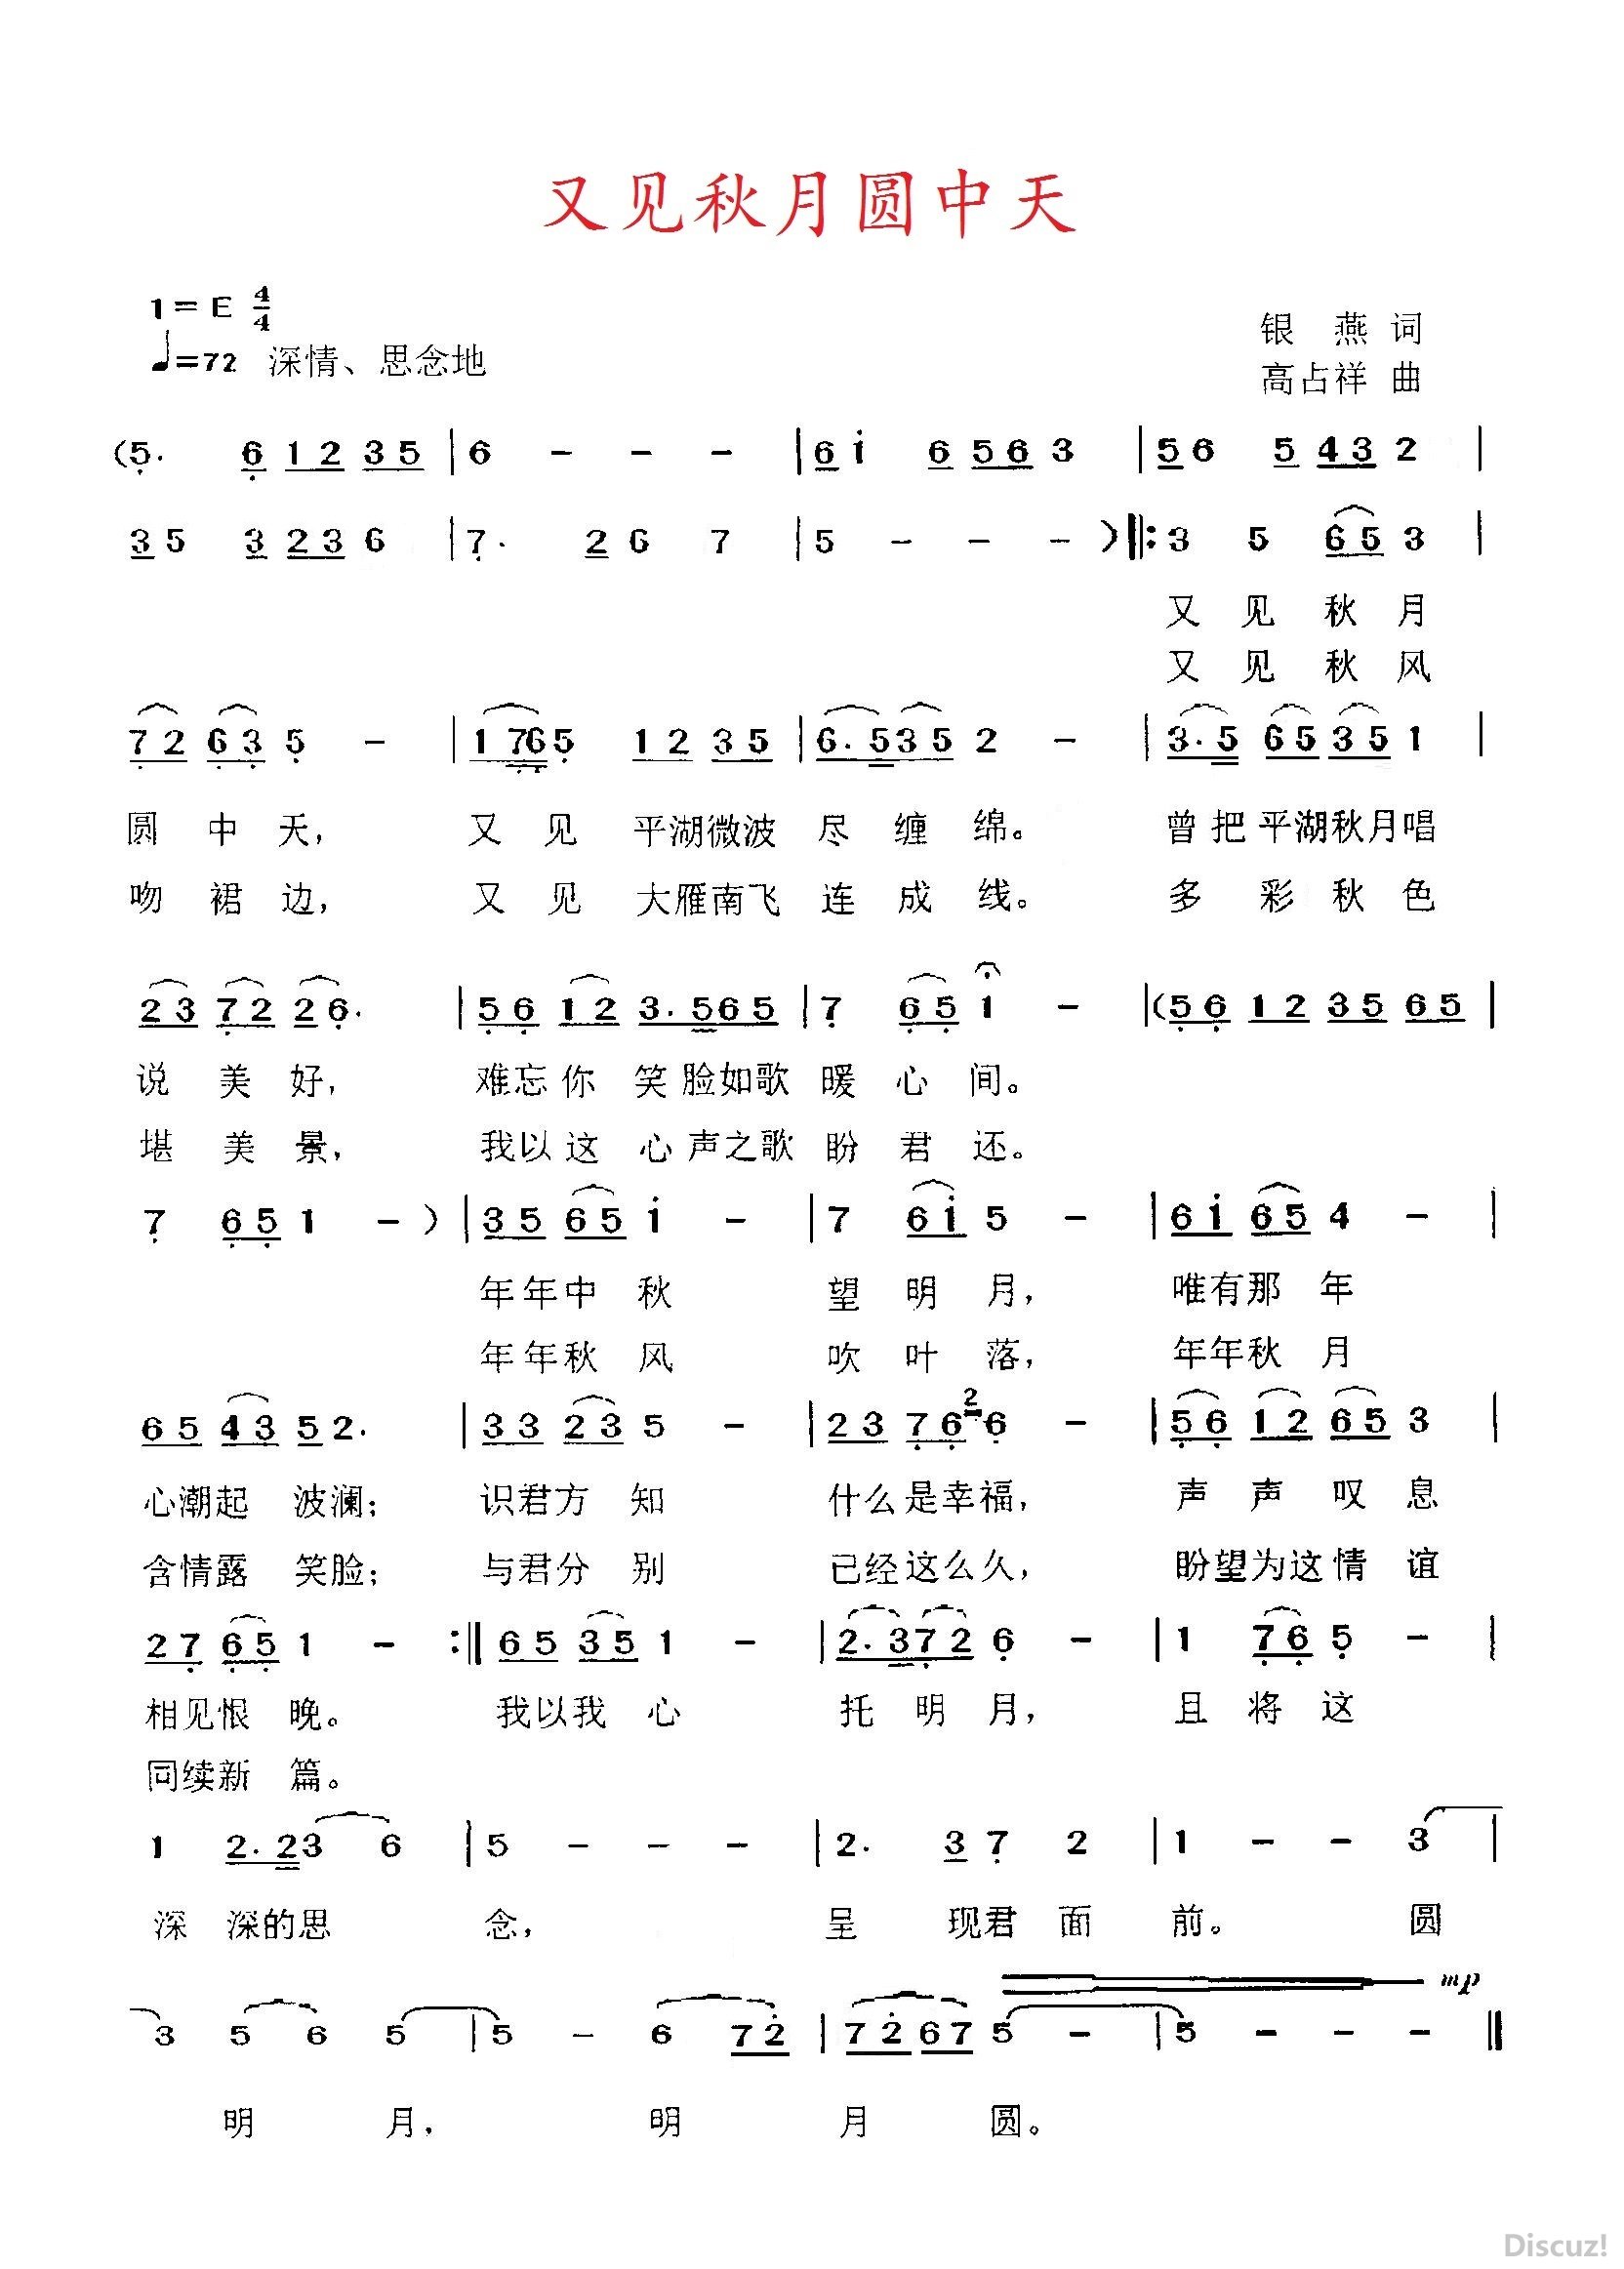 又见秋月圆中天
1=E 4/4
♩=72 深情、思念地
银 燕 词
高占祥 曲
(5. 6 12 35 | 6 - - - | 6i 6 56 3 | 56 5 43 2 |
35 3 23 6 | 7. 2 6 7 | 5 - - - ) ‖: 3 5 65 3 |
又 见 秋 月
又 见 秋 风
72 63 5 - | 1 765 12 35 | 6.535 2 - | 3.5 65 35 1 |
圆 中 天, 又 见 平湖微波 尽 缠 绵。 曾把平湖秋月唱
吻 裙 边, 又 见 大雁南飞 连 成 线。 多 彩 秋 色
23 72 26. | 56 12 3.565 | 7 65 1 - | (56 12 35 65 |
说 美 好, 难忘你 笑 脸如歌 暖 心 间。
堪 美 景, 我以这 心 声之歌 盼 君 还。
7 65 1 - ) | 35 65 i - | 7 6i 5 - | 6i 65 4 - |
年年中 秋 望 明 月, 唯有那 年
年年秋 风 吹 叶 落, 年年秋 月
65 43 52. | 33 23 5 - | 23 76 2 6 - | 56 12 65 3 |
心潮起 波澜; 识君方 知 什么是幸福, 声 声 叹 息
含情露 笑脸; 与君分 别 已经这么久, 盼望为这 情 谊
27 65 1 - :‖ 65 35 1 - | 2.372 6 - | 1 76 5 - |
相见恨 晚。 我以我 心 托 明 月, 且 将 这
同续新 篇。
1 2.23 6 | 5 - - - | 2. 3 7 2 | 1 - - 3 |
深 深的思 念, 呈 现君 面 前。 圆
mp
3 5 6 5 | 5 - 6 72 | 72 67 5 - | 5 - - - ‖
明 月, 明 月 圆。
Discuz!